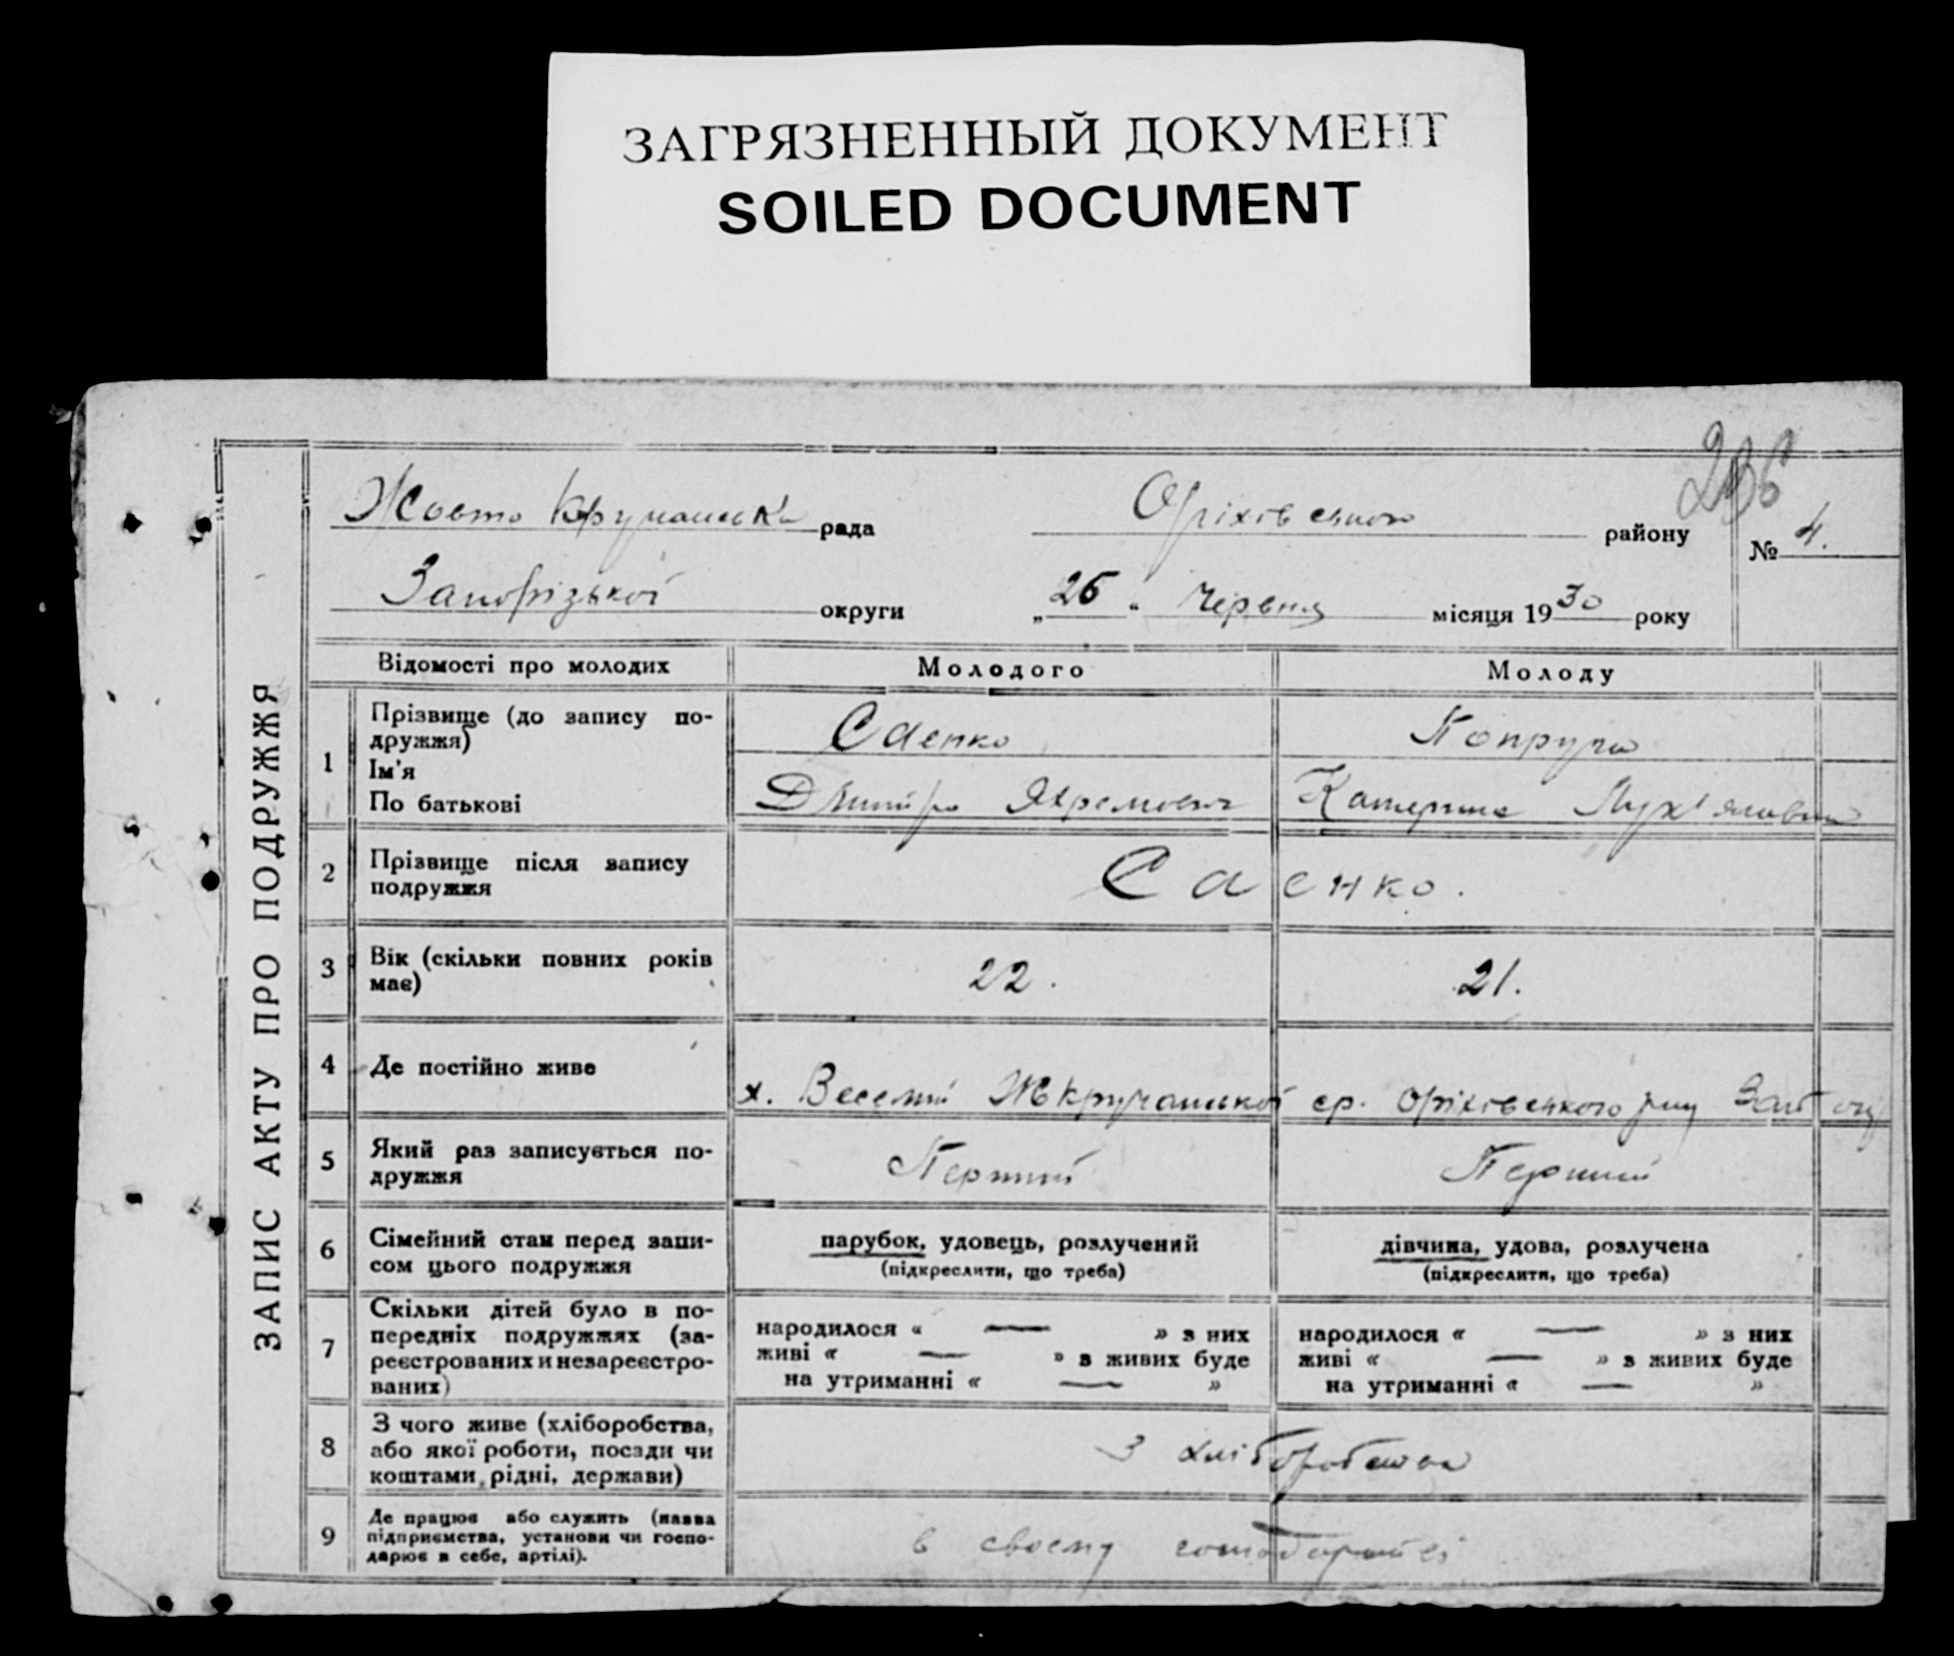 ЗАГРЯЗНЕННЫЙ ДОКУМЕНТ
SOILED DOCUMENT
236
ЗАПИС АКТУ ПРО ПОДРУЖЖЯ
Жовто Кручанська рада Оріхівського району № 4.
Запорізької округи „26“ червня місяця 1930 року
Відомості про молодих Молодого Молоду
1 Прізвище (до запису по-
дружжя) Саенко Попруга
Ім'я
По батькові Дмитро Яхремович Катерина
2 Прізвище після запису
подружжя Саенко.
3 Вік (скільки повних років
має) 22. 21.
4 Де постійно живе х. Веселий ЖКручанської ср. Оріхівського р-ну Зап окр
5 Який раз записується по-
дружжя Перший Перший
6 Сімейний стан перед запи-
сом цього подружжя парубок, удовець, розлучений дівчина, удова, розлучена
(підкреслити, що треба) (підкреслити, що треба)
7 Скільки дітей було в по-
передніх подружжях (за-
реєстрованих и незареєстро-
ваних)
народилося « — » з них народилося « — » з них
живі « — » з живих буде живі « — » з живих буде
на утриманні « — » на утриманні « — »
8 З чого живе (хліборобства,
або якої роботи, посади чи
коштами рідні, держави) З хліборобства
9 Де працює або служить (назва
підприємства, установи чи госпо-
дарює в себе, артілі). в своему господарстві